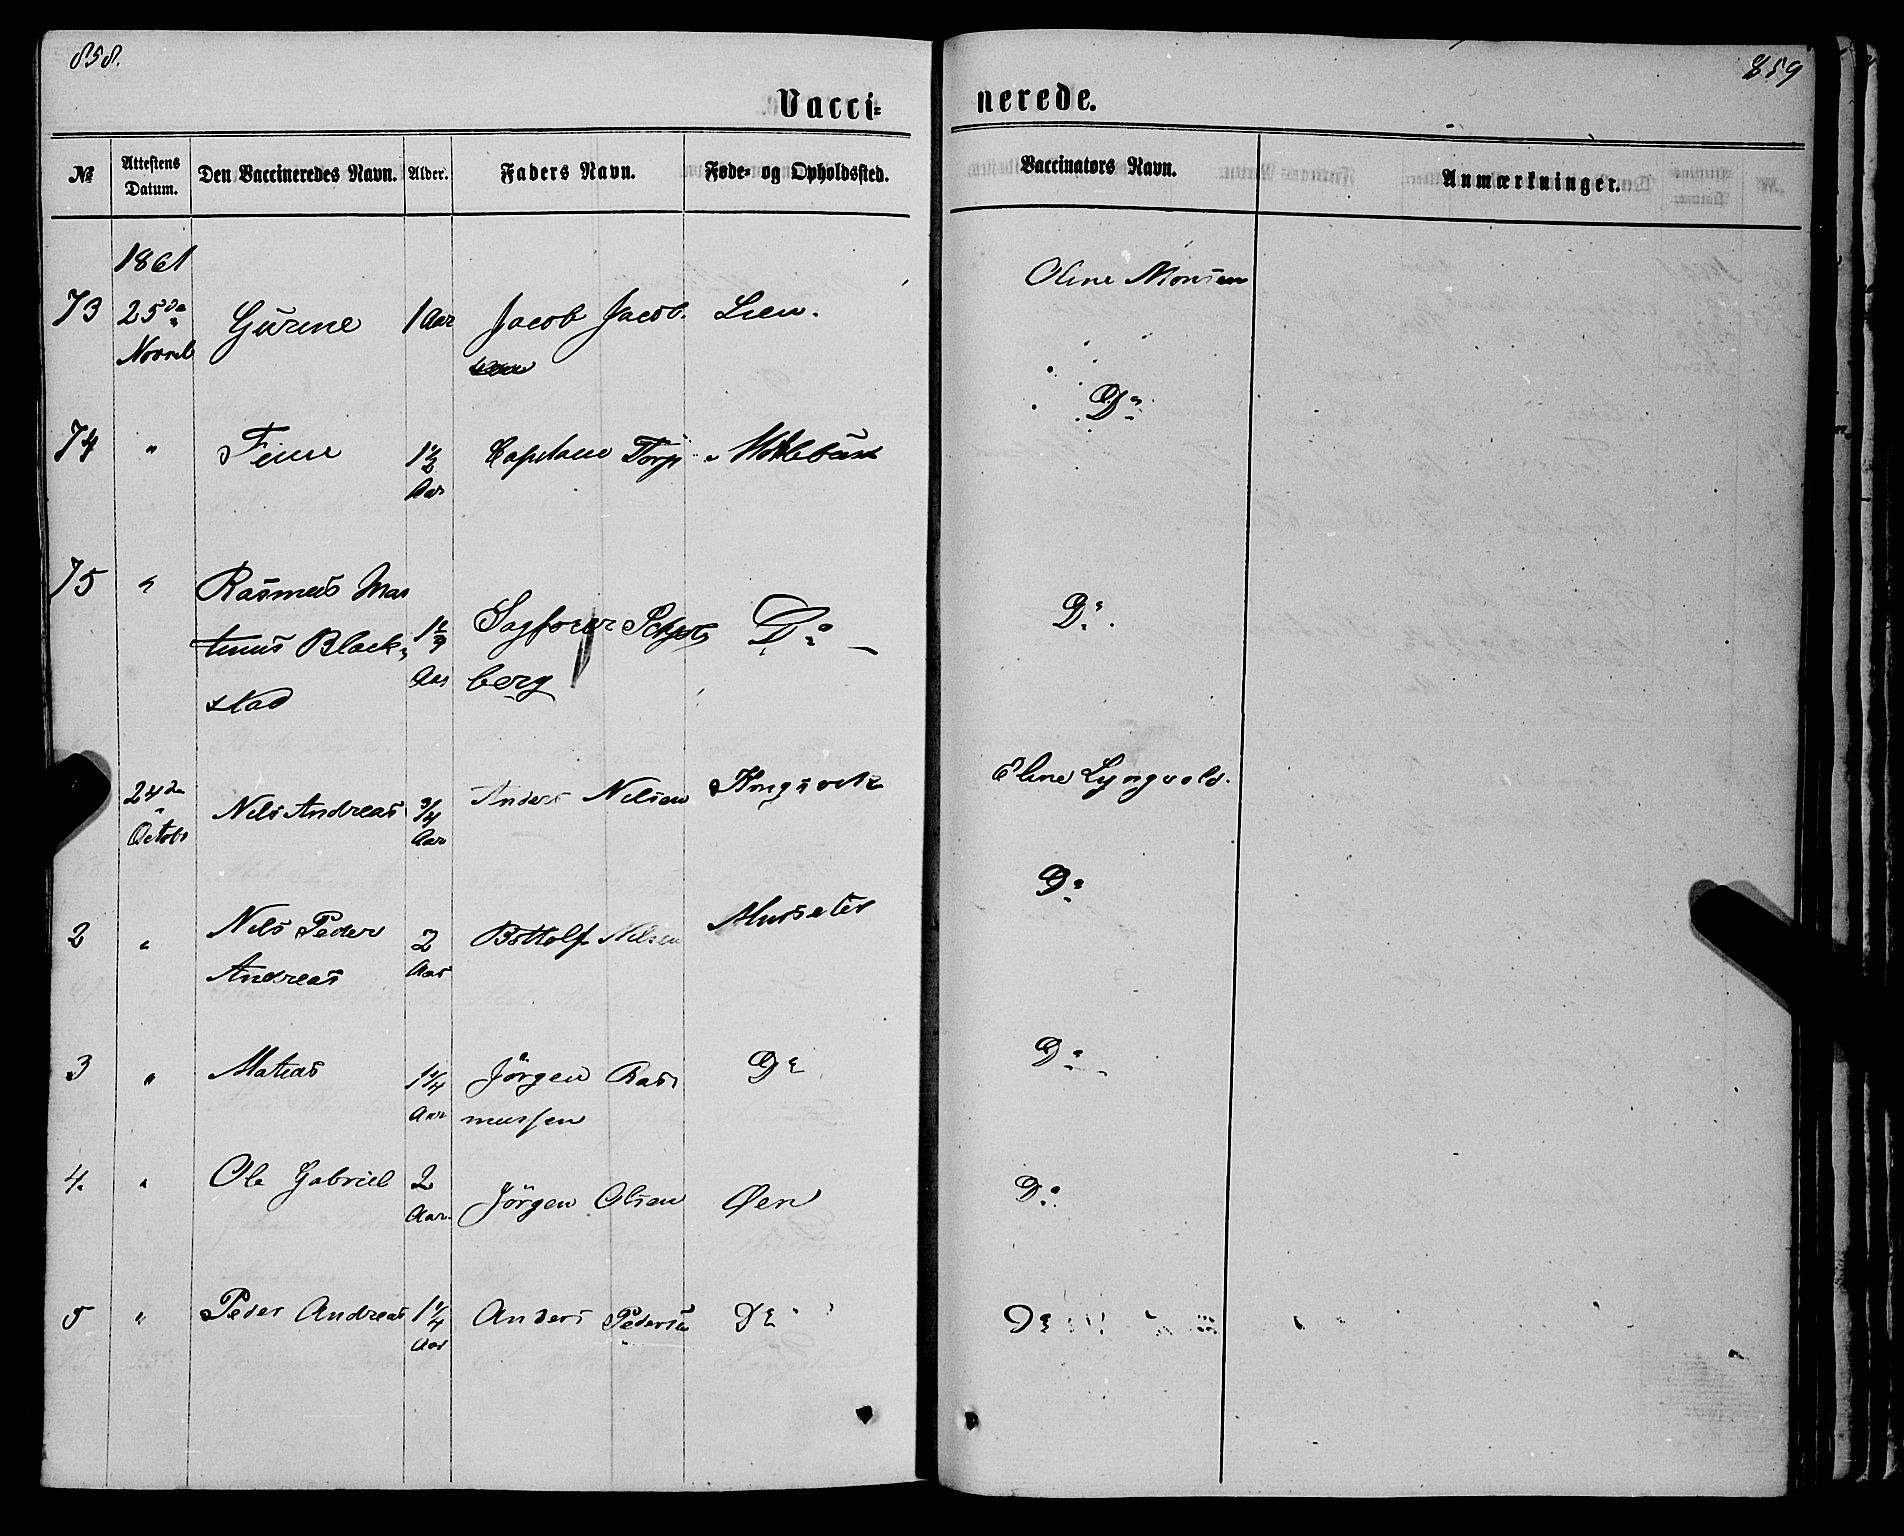 858.
859
Vacci-
nerede.
№ Attestens Datum. Den Vaccineredes Navn. Alder. Faders Navn. Føde- og Opholdssted. Vaccinators Navn. Anmærkninger.
1861
73 25de Novmb Gurine 1 Aar Jacob Jacob- Lien. Oline Monsen
sen
74 " 1½ Aar Torp Do
75 " Rasmus Mar
tinus Black-
stad
Aar berg Do Do
24de Octobr Nils Andreas 3/4 Aar Anders Nilsen Kongsvik Eline Lyngvold.
2 " Nils Peder 2 Aar Bottolf Nilsen Murseter Do
Andreas
3 " Matias 1¼ Aar Jörgen Ras- Do Do
mussen
4. " Ole Gabriel 2 Aar Jörgen Olsen Øen Do
5 " Peder Andreas 1¼ Aar Anders Pedersen Do Do